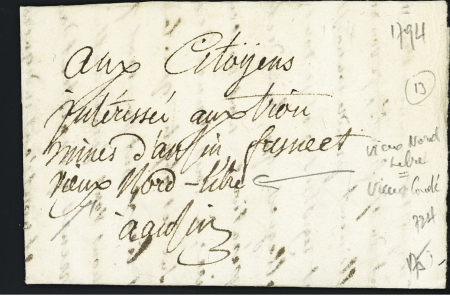 1794
13
aux Citoyens
intéressés aux trou
mines d'ansin fresnest
vieux Nord-libre
a ansin
vieux Nord
Libre
=
Vieux Condé